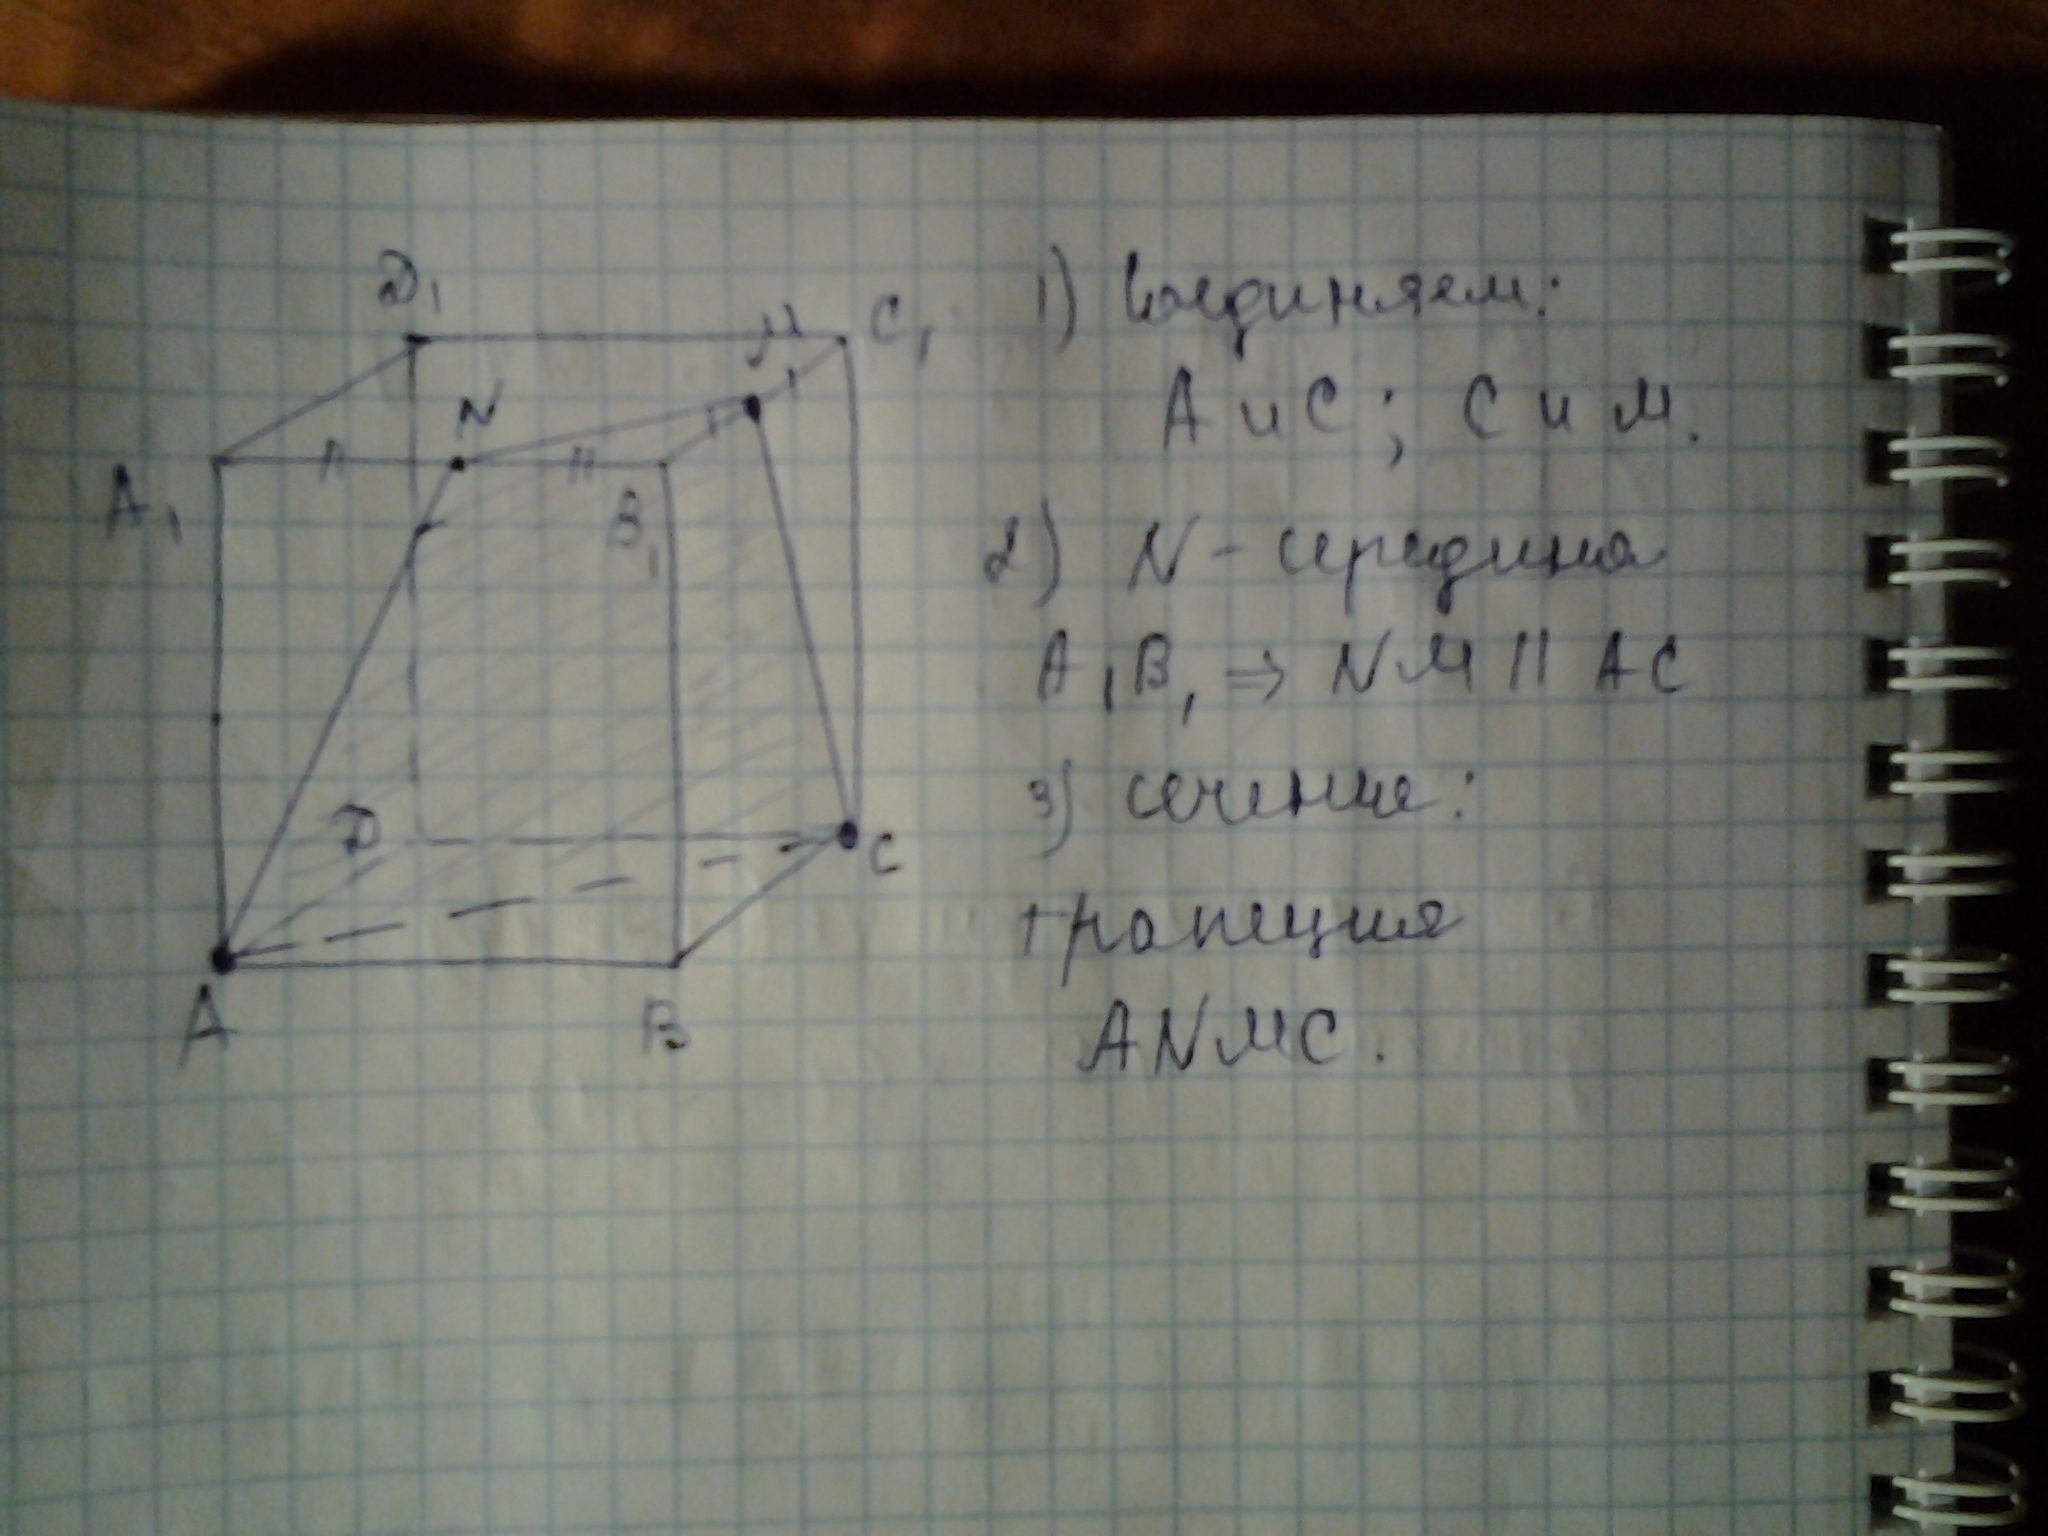 D₁
M
C₁
N
A₁
B₁
D
C
A
B
1) Соединяем:
A и C; C и M.
2) N - середина
A₁B₁ ⇒ NM || AC
3) сечение:
трапеция
ANMC.